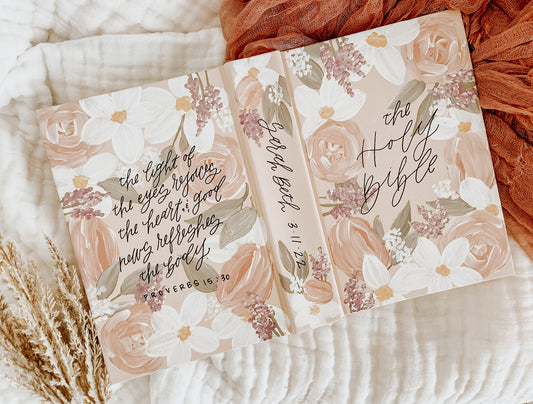 the light of
the eyes rejoices
the heart & good
news refreshes
the body
PROVERBS 15:30
Sarah Beth 3.11.22
the
Holy
Bible